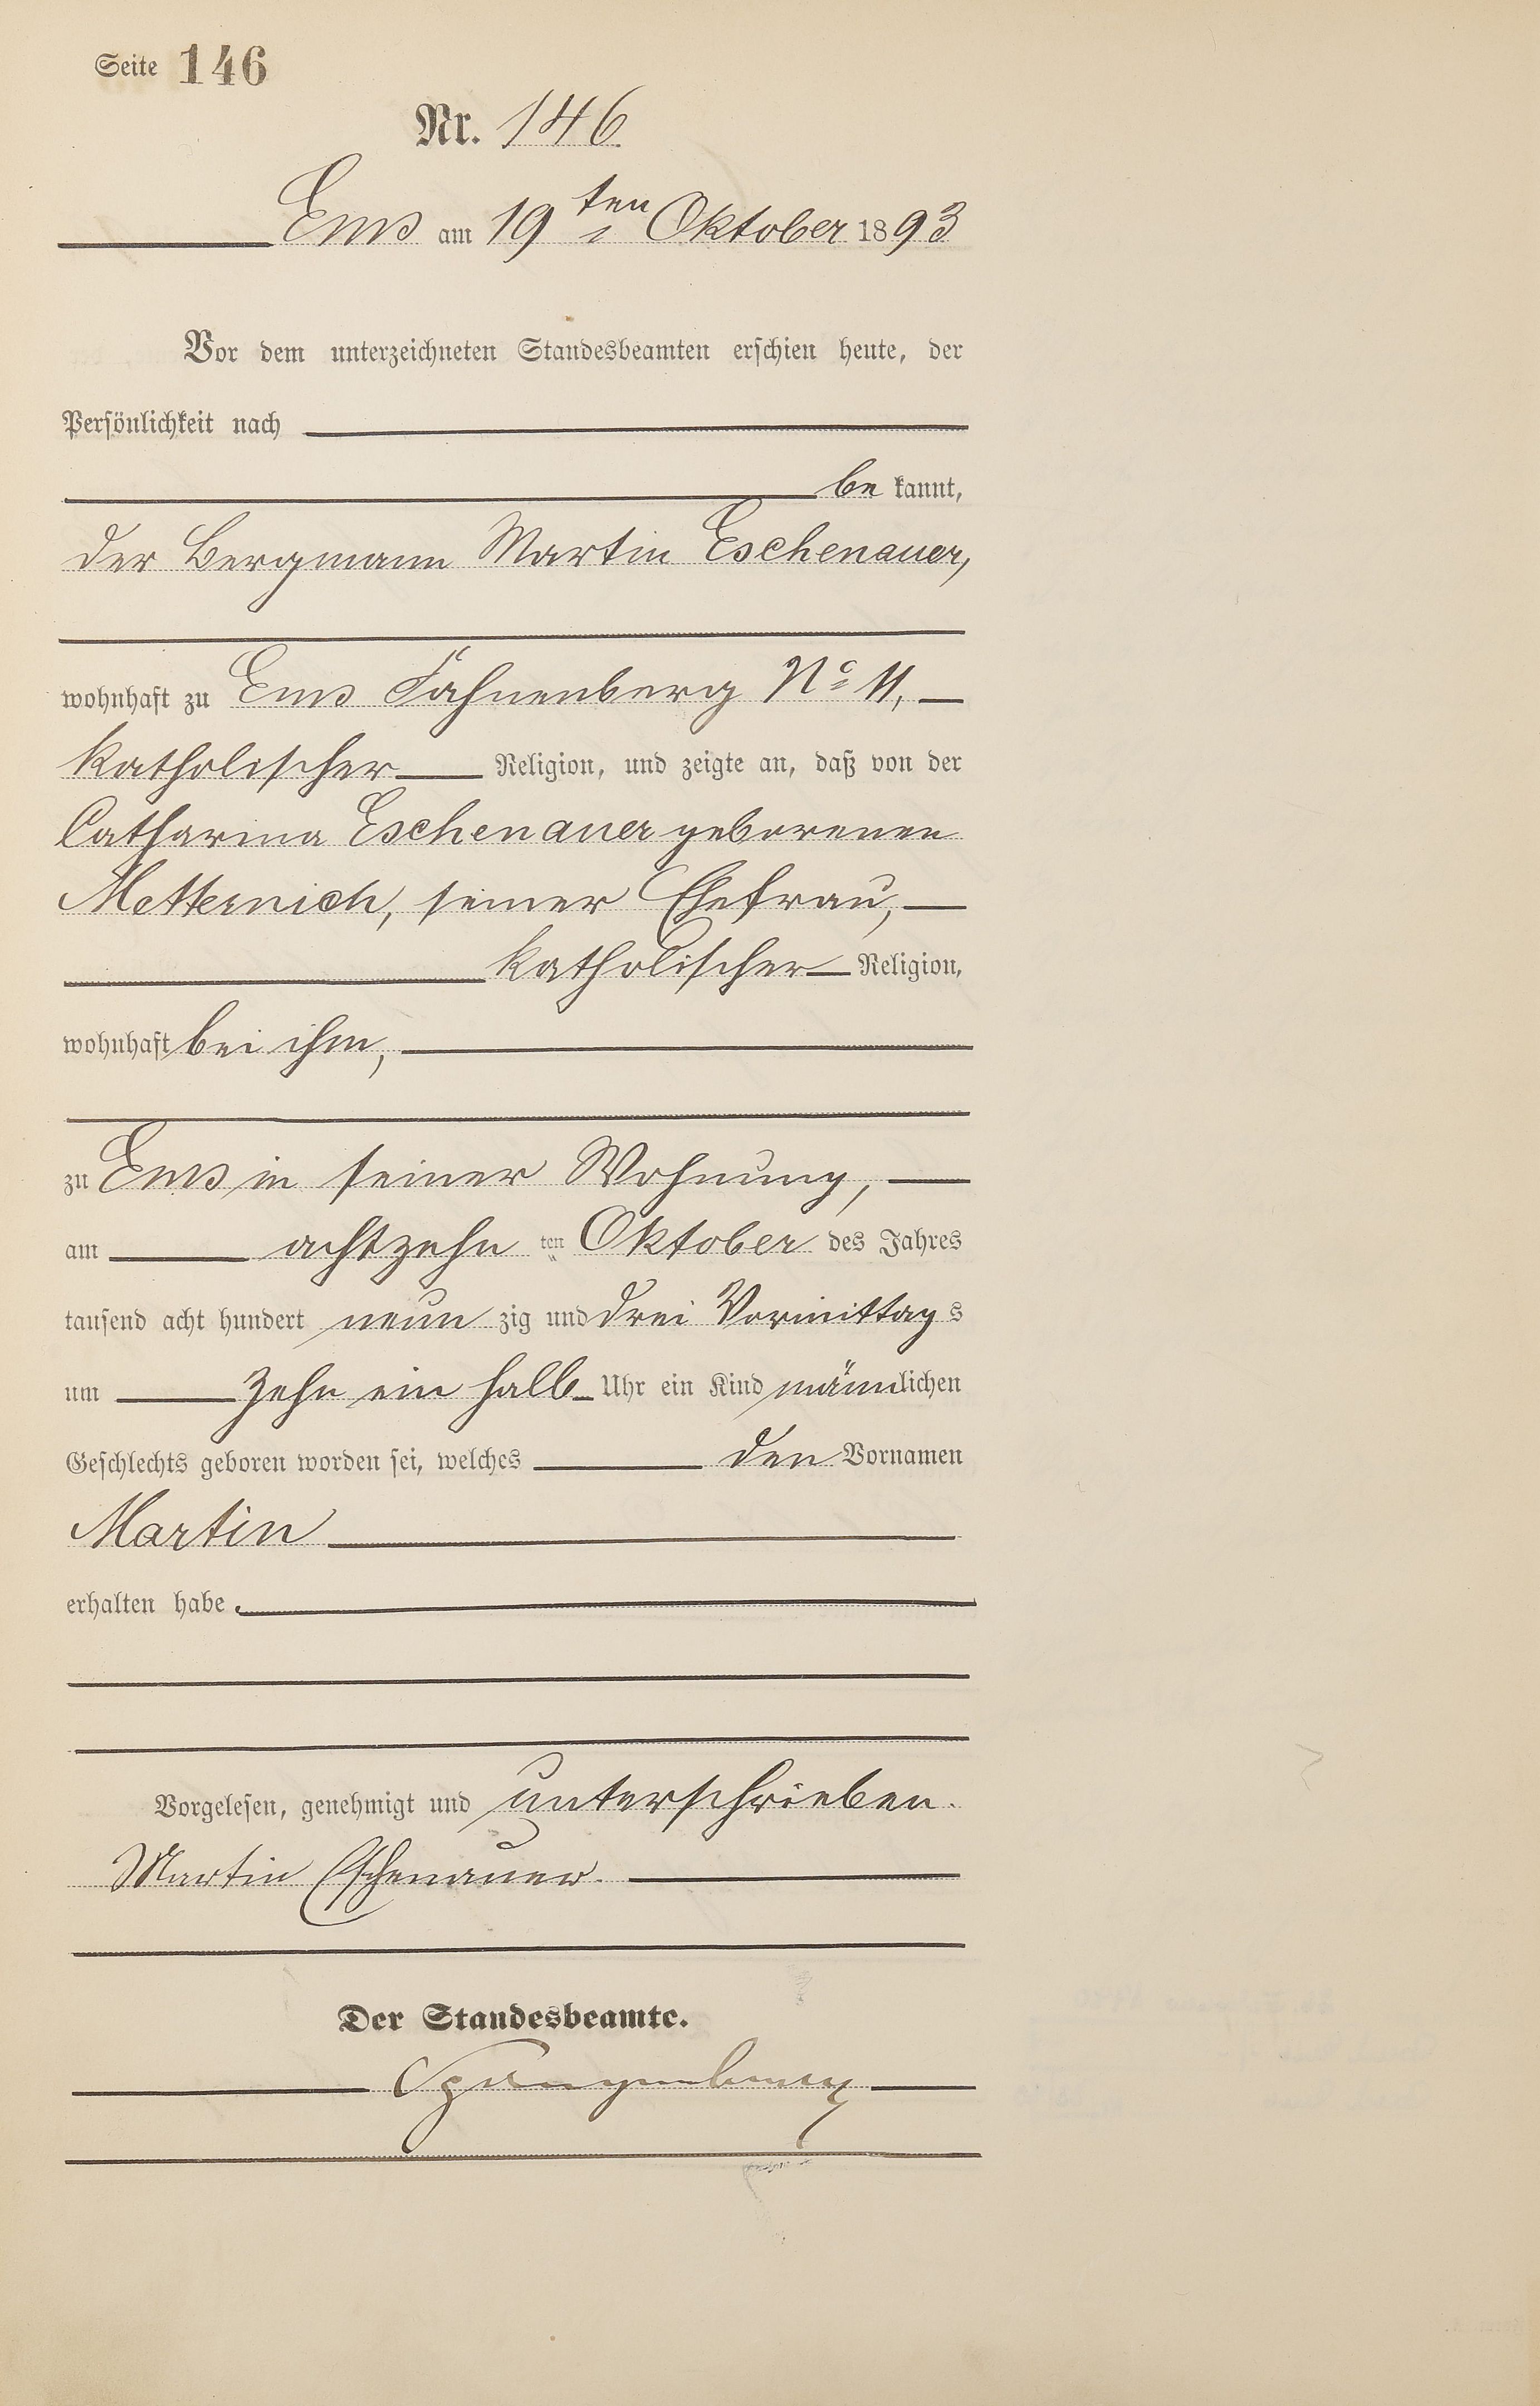 Seite 146
Nr. 146
Ems am 19ten Oktober 1893
Vor dem unterzeichneten Standesbeamten erschien heute, der
Persönlichkeit nach
be kannt,
der Bergmann Martin Eschenauer,
wohnhaft zu Ems Fahnenberg No 11,
katholischer Religion, und zeigte an, daß von der
Catharina Eschenauer geborenen
Metternich, seiner Ehefrau,
katholischer Religion,
wohnhaft bei ihm,
zu Ems in seiner Wohnung,
am achtzehn ten Oktober des Jahres
tausend acht hundert neun zig und drei Vormittag s
um zehn ein halb Uhr ein Kind männlichen
Geschlechts geboren worden sei, welches den Vornamen
Martin
erhalten habe.
Vorgelesen, genehmigt und unterschrieben.
Martin Eschenauer.
Der Standesbeamte.
Spangenberg